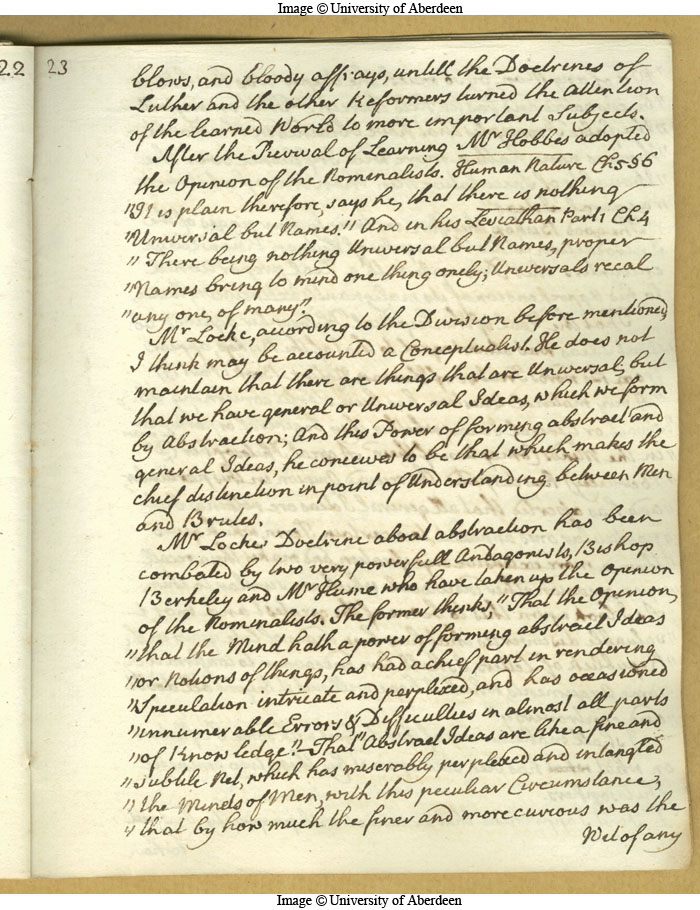 Image © University of Aberdeen
22
23
blows, and bloody affrays, untill the Doctrines of
Luther and the other Reformers turned the Attention
of the learned World to more important Subjects.
After the Revival of Learning Mr Hobbes adopted
the Opinion of the Nominalists. Human Nature Ch 5 § 6
"It is plain therefore, says he, that there is nothing
"Universal but Names." And in his Leviathan Part 1 Ch 4
"There being nothing Universal but Names, proper
"Names bring to mind one thing onely; Universals recal
"any one, of many".
Mr Locke, according to the Division before mentioned,
I think may be accounted a Conceptualist. He does not
maintain that there are things that are Universal; but
that we have general or Universal Ideas, which we form
by Abstraction; And this Power of forming abstract and
general Ideas, he conceives to be that which makes the
chief distinction in point of Understanding between Men
and Brutes.
Mr Lockes Doctrine about abstraction has been
combated by two very powerfull Antagonists, Bishop
Berkeley and Mr Hume who have taken up the Opinion
of the Nominalists. The former thinks, "That the Opinion,
"that the Mind hath a power of forming abstract Ideas
"or Notions of things, has had a chief part in rendering
"Speculation intricate and perplexed, and has occasioned
"innumerable Errors & Difficulties in almost all parts
"of Knowledge." - That "Abstract Ideas are like a fine and
"subtile Net, which has miserably perplexed and intangled
"the Minds of Men, with this peculiar Circumstance,
"that by how much the finer and more curious was the
Wit of any
Image © University of Aberdeen